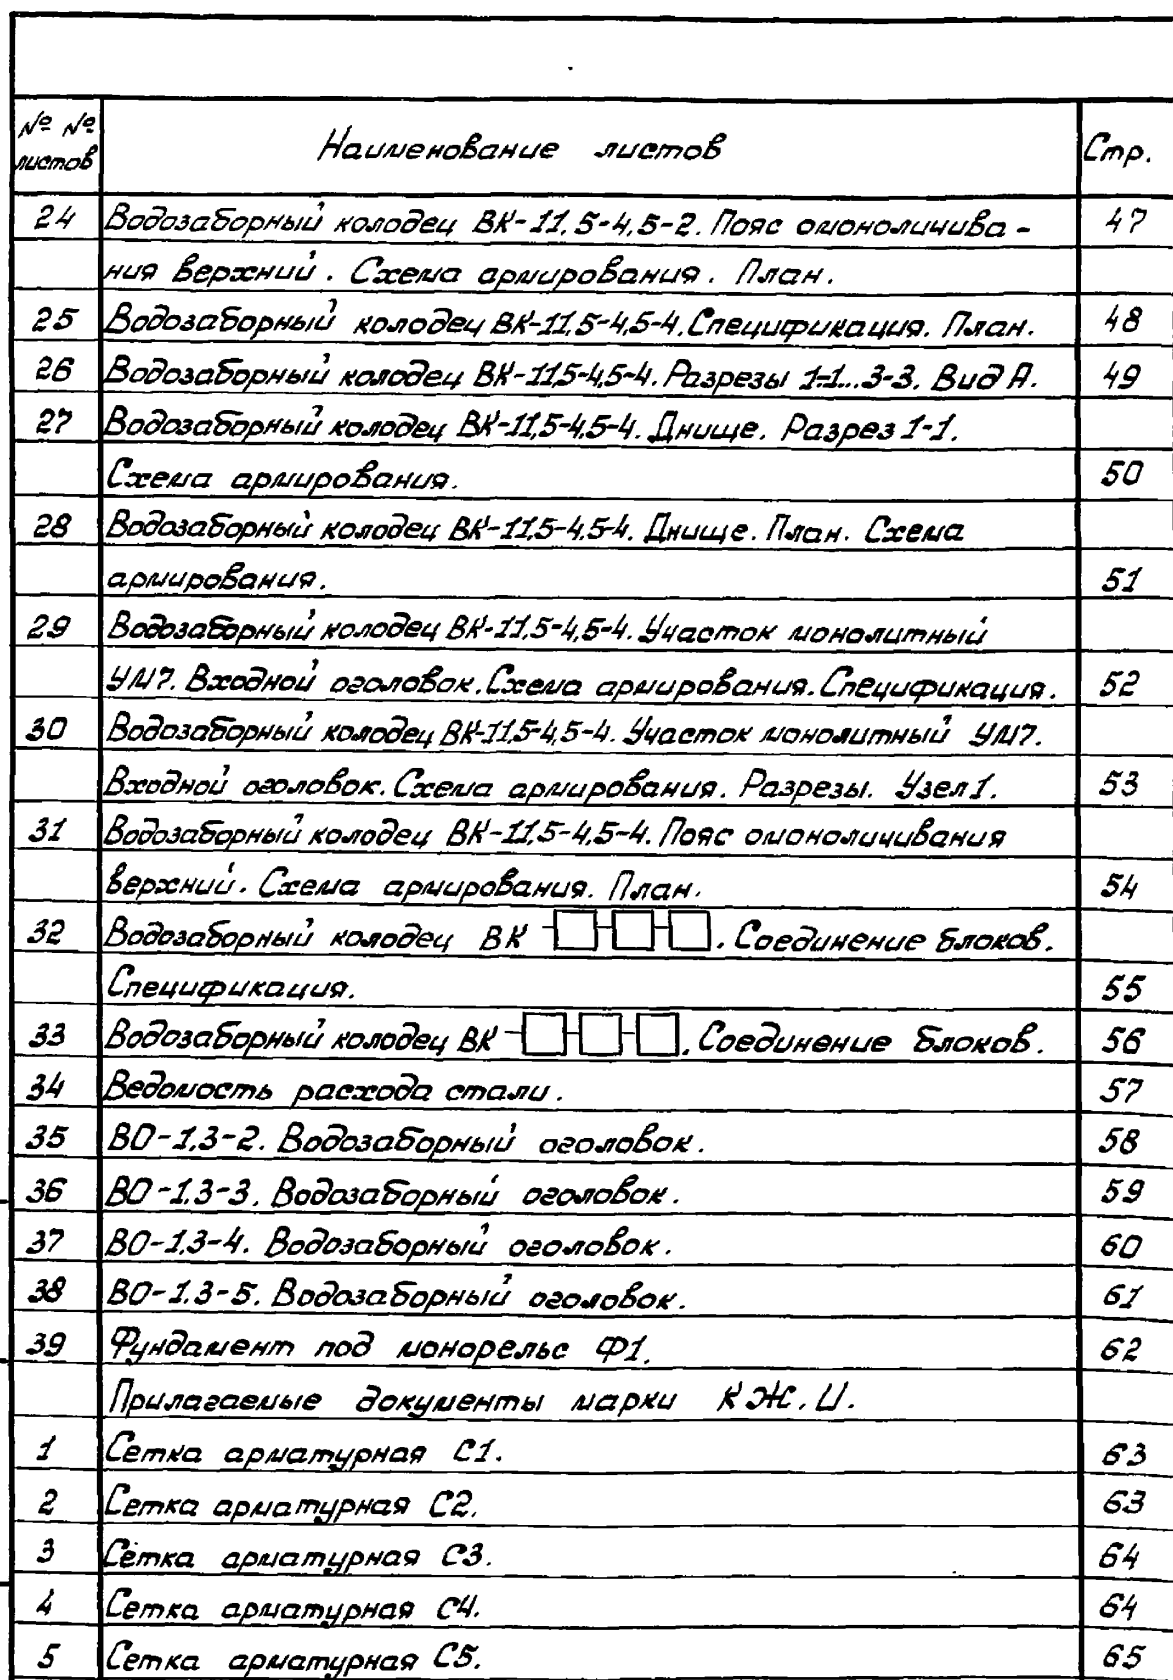 № №
листов
Наименование листов
Стр.
24 Водозаборный колодец ВК-11,5-4,5-2. Пояс омоноличива- 47
ния верхний. Схема армирования. План.
25 Водозаборный колодец ВК-11,5-4,5-4. Спецификация. План. 48
26 Водозаборный колодец ВК-11,5-4,5-4. Разрезы 1-1...3-3. Вид А. 49
27 Водозаборный колодец ВК-11,5-4,5-4. Днище. Разрез 1-1.
Схема армирования. 50
28 Водозаборный колодец ВК-11,5-4,5-4. Днище. План. Схема
армирования. 51
29 Водозаборный колодец ВК-11,5-4,5-4. Участок монолитный
УМ7. Входной оголовок. Схема армирования. Спецификация. 52
30 Водозаборный колодец ВК-11,5-4,5-4. Участок монолитный УМ7.
Входной оголовок. Схема армирования. Разрезы. Узел 1. 53
31 Водозаборный колодец ВК-11,5-4,5-4. Пояс омоноличивания
верхний. Схема армирования. План. 54
32 Водозаборный колодец ВК -□-□-□. Соединение блоков.
Спецификация. 55
33 Водозаборный колодец ВК -□-□-□. Соединение блоков. 56
34 Ведомость расхода стали. 57
35 ВО-1,3-2. Водозаборный оголовок. 58
36 ВО-1,3-3. Водозаборный оголовок. 59
37 ВО-1,3-4. Водозаборный оголовок. 60
38 ВО-1,3-5. Водозаборный оголовок. 61
39 Фундамент под монорельс Ф1. 62
Прилагаемые документы марки КЖ.И.
1 Сетка арматурная С1. 63
2 Сетка арматурная С2. 63
3 Сетка арматурная С3. 64
4 Сетка арматурная С4. 64
5 Сетка арматурная С5. 65